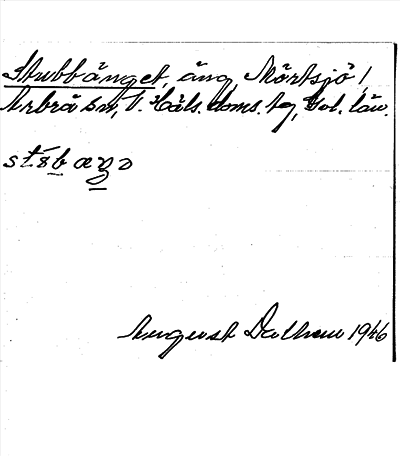 Stubbänget, äng, Mörtsjö,
Arbrå sn, V. Häls. doms. tg, Gvl. län.
August Dalhem 1946